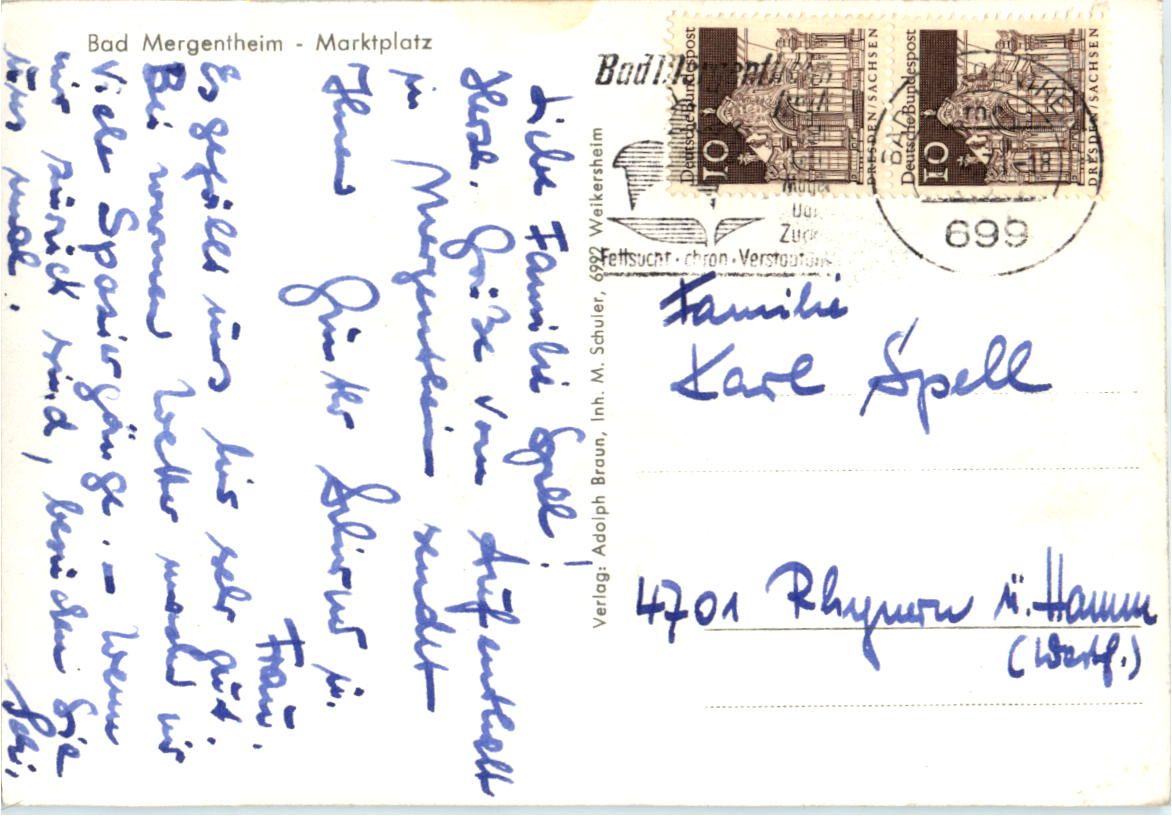 Bad Mergentheim - Marktplatz
Liebe Familie Spell!
Herzl. Grüße vom Aufenthalt
in Mergentheim sendet
Ihnen Günther u.
Frau.
Es gefällt uns hier sehr gut.
Bei warmen Wetter machen wir
viele Spaziergänge. – Wenn
wir zurück sind, besuchen Sie
uns mal.
Verlag: Adolph Braun, Inh. M. Schuler, 6992 Weikersheim
Bad Mergentheim
Fettsucht · chron · Verstopfung
699
Deutsche Bundespost
10
DRESDEN/SACHSEN
Deutsche Bundespost
10
DRESDEN/SACHSEN
Familie
Karl Spell
4701 Rhynern ü. Hamm
(Westf.)